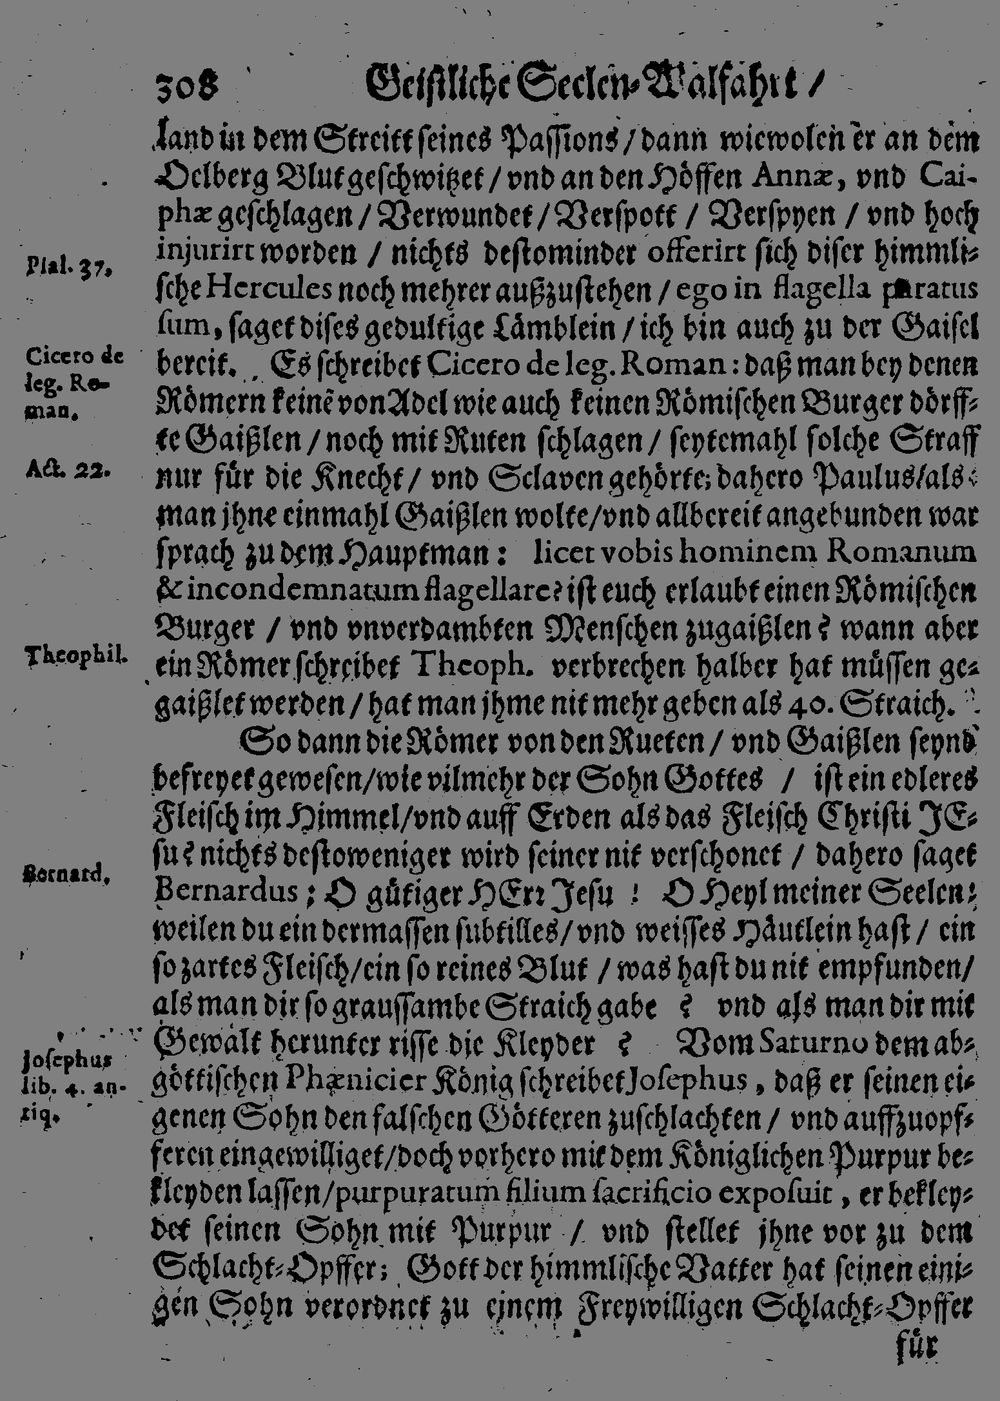 308 Geistliche Seelen-Walfahrt /
land in dem Streitt seines Passions / dann wiewolen er an dem
Oelberg Blut geschwitzet / vnd an den Höffen Annæ, vnd Cai-
phæ geschlagen / Verwundet / Verspott / Verspyen / vnd hoch
injurirt worden / nichts destominder offerirt sich diser himmli-
Psal. 37.
sche Hercules noch mehrer außzustehen / ego in flagella paratus
sum, saget dises gedultige Lämblein / ich bin auch zu der Gaisel
Cicero de
leg. Ro-
man.
bereit. Es schreibet Cicero de leg. Roman: daß man bey denen
Römern keinē von Adel wie auch keinen Römischen Burger dörff-
te Gaißlen / noch mit Ruten schlagen / seytemahl solche Straff
Act. 22.
nur für die Knecht / vnd Sclaven gehörte; dahero Paulus / als
man jhne einmahl Gaißlen wolte / vnd allbereit angebunden war
sprach zu dem Hauptman: licet vobis hominem Romanum
& incondemnatum flagellare? ist euch erlaubt einen Römischen
Burger / vnd vnverdambten Menschen zugaißlen? wann aber
Theophil.
ein Römer schreibet Theoph. verbrechen halber hat müssen ge-
gaißlet werden / hat man jhme nit mehr geben als 40. Straich.
So dann die Römer von den Rueten / vnd Gaißlen seynd
befreyet gewesen / wie vilmehr der Sohn Gottes / ist ein edleres
Fleisch im Himmel / vnd auff Erden als das Fleisch Christi JE-
su? nichts destoweniger wird seiner nit verschonet / dahero saget
Bernard.
Bernardus: O gütiger HErr Jesu! O Heyl meiner Seelen!
weilen du ein dermassen subtilles / vnd weisses Häutlein hast / ein
so zartes Fleisch / ein so reines Blut / was hast du nit empfunden /
als man dir so graussambe Straich gabe? vnd als man dir mit
Gewalt herunter risse die Kleyder? Vom Saturno dem ab-
Josephus
lib. 4. an-
tiq.
göttischen Phænicier König schreibet Josephus, daß er seinen ei-
genen Sohn den falschen Götteren zuschlachten / vnd auffzuopf-
feren eingewilliget / doch vorhero mit dem Königlichen Purpur be-
kleyden lassen / purpuratum filium sacrificio exposuit, er bekley-
det seinen Sohn mit Purpur / vnd stellet jhne vor zu dem
Schlacht-Opffer; Gott der himmlische Vatter hat seinen eini-
gen Sohn verordnet zu einem Freywilligen Schlacht-Opffer
für